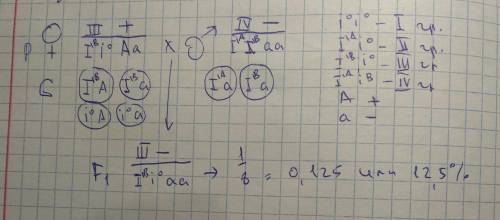 III + IV -
P I^B i^0 Aa x I^A I^B aa
G I^B A I^B a I^A a I^B a
i^0 A i^0 a
III -
F₁ I^B i^0 aa → 1/8 = 0,125 или 12,5%
i^0 i^0 - I гр.
I^A i^0 - II гр.
I^B i^0 - III гр
I^A i^B - IV гр
A +
a -